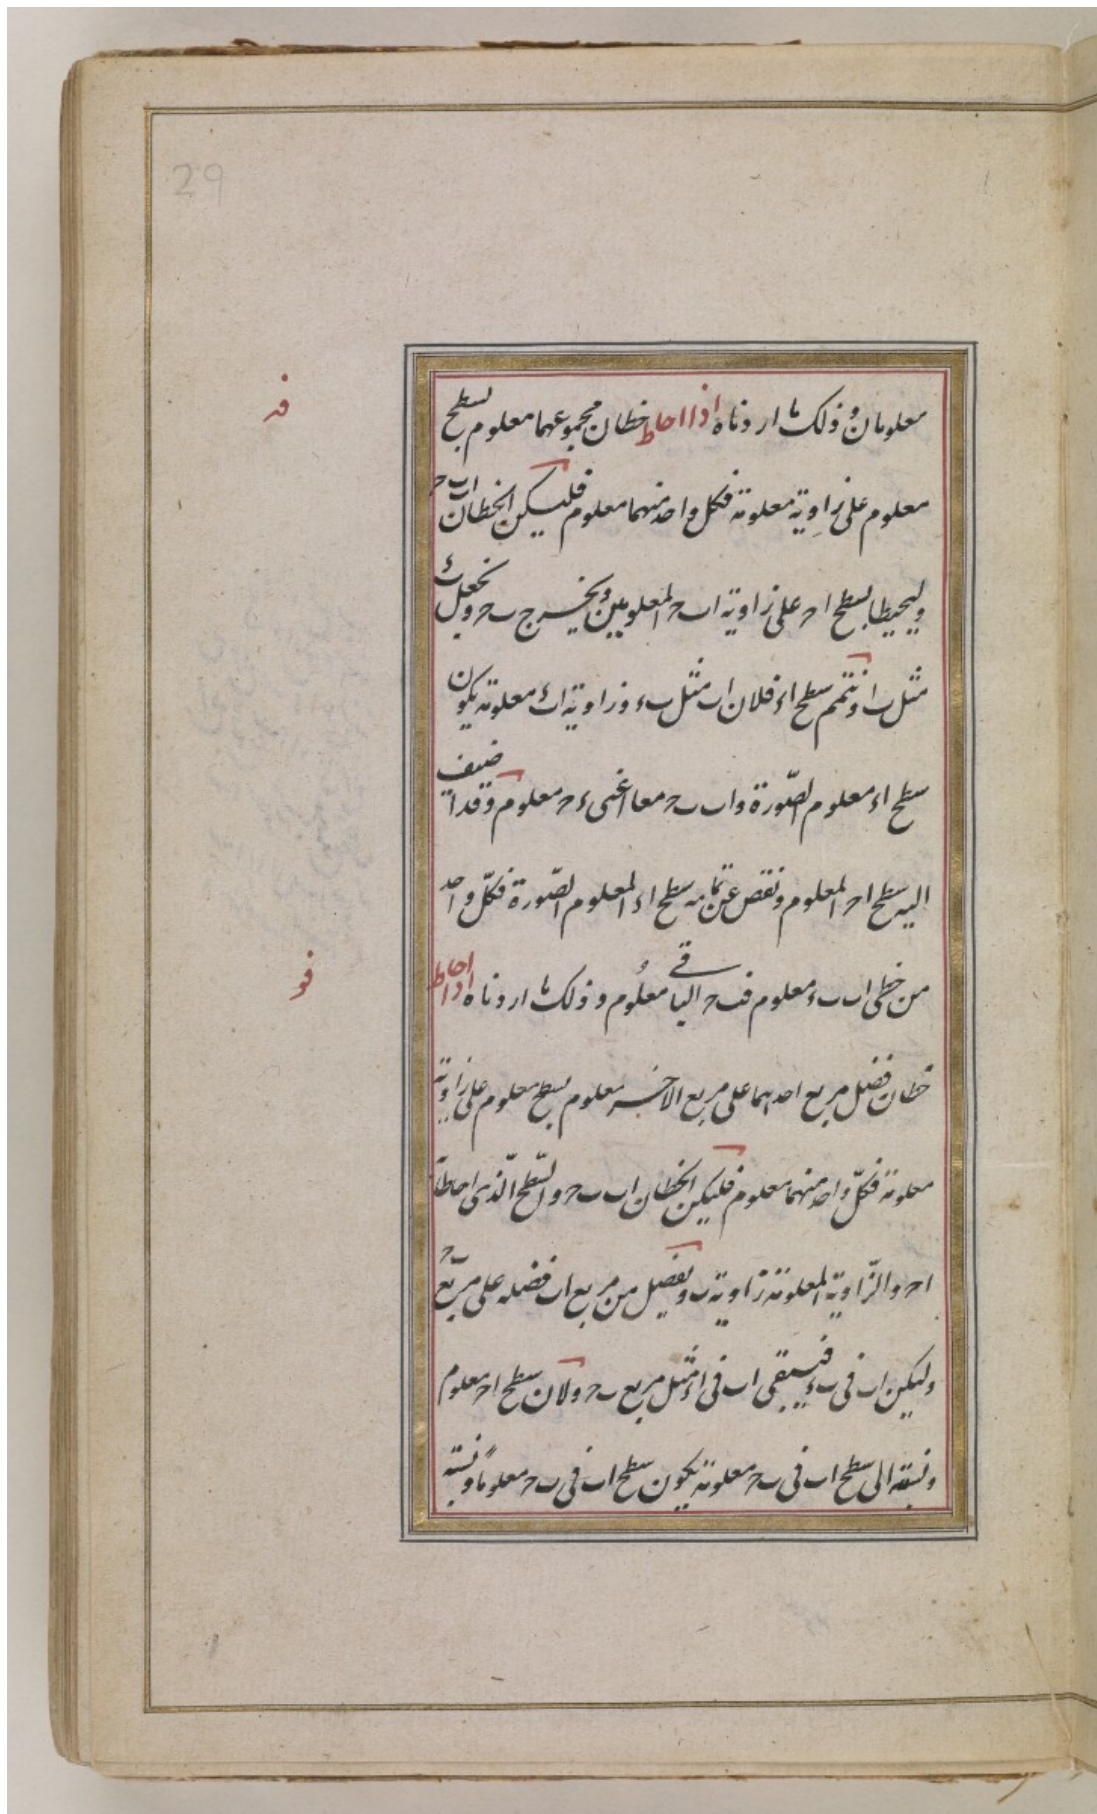 29
معلومان وذلك ما اردناه اذا احاط خطان مجموعهما معلوم بسطح
فه
معلوم على زاوية معلومة فكل واحد منهما معلوم فليكن الخطان اب ٮح
وليحيطا بسطح اح على زاوية اٮح المعلومين ويخرج ٮح ونجعل ٮء
مثل ٮا ونتمم سطح اء فلان اب مثل ٮء وزاوية اٮء معلومة يكون
سطح اء معلوم الصّورة واب ٮح معا اعنى ءح معلوم وقد اضيف
اليه سطح اح المعلوم ونقص عن تمامه سطح اء المعلوم الصّورة فكلّ واحد
من خطى اب ٮء معلوم فٮح الباقى معلوم وذلك ما اردناه اذا احاط
فو
خطان فضل مربع احدهما على مربع الاخر معلوم بسطح معلوم على زاوية
معلومة فكلّ واحد منهما معلوم فليكن الخطان اب ٮح والسّطح الّذى احاطا
اح والزّاوية المعلومة زاوية ٮ ونفصل من مربع اب فضله على مربّع ٮح
وليكن اب فى ٮء فيبقى اب فى اء مثل مربع ٮح ولان سطح اح معلوم
ونسبته الى سطح اب فى ٮح معلومة يكون سطح اب فى ٮح معلومًا ونسبة